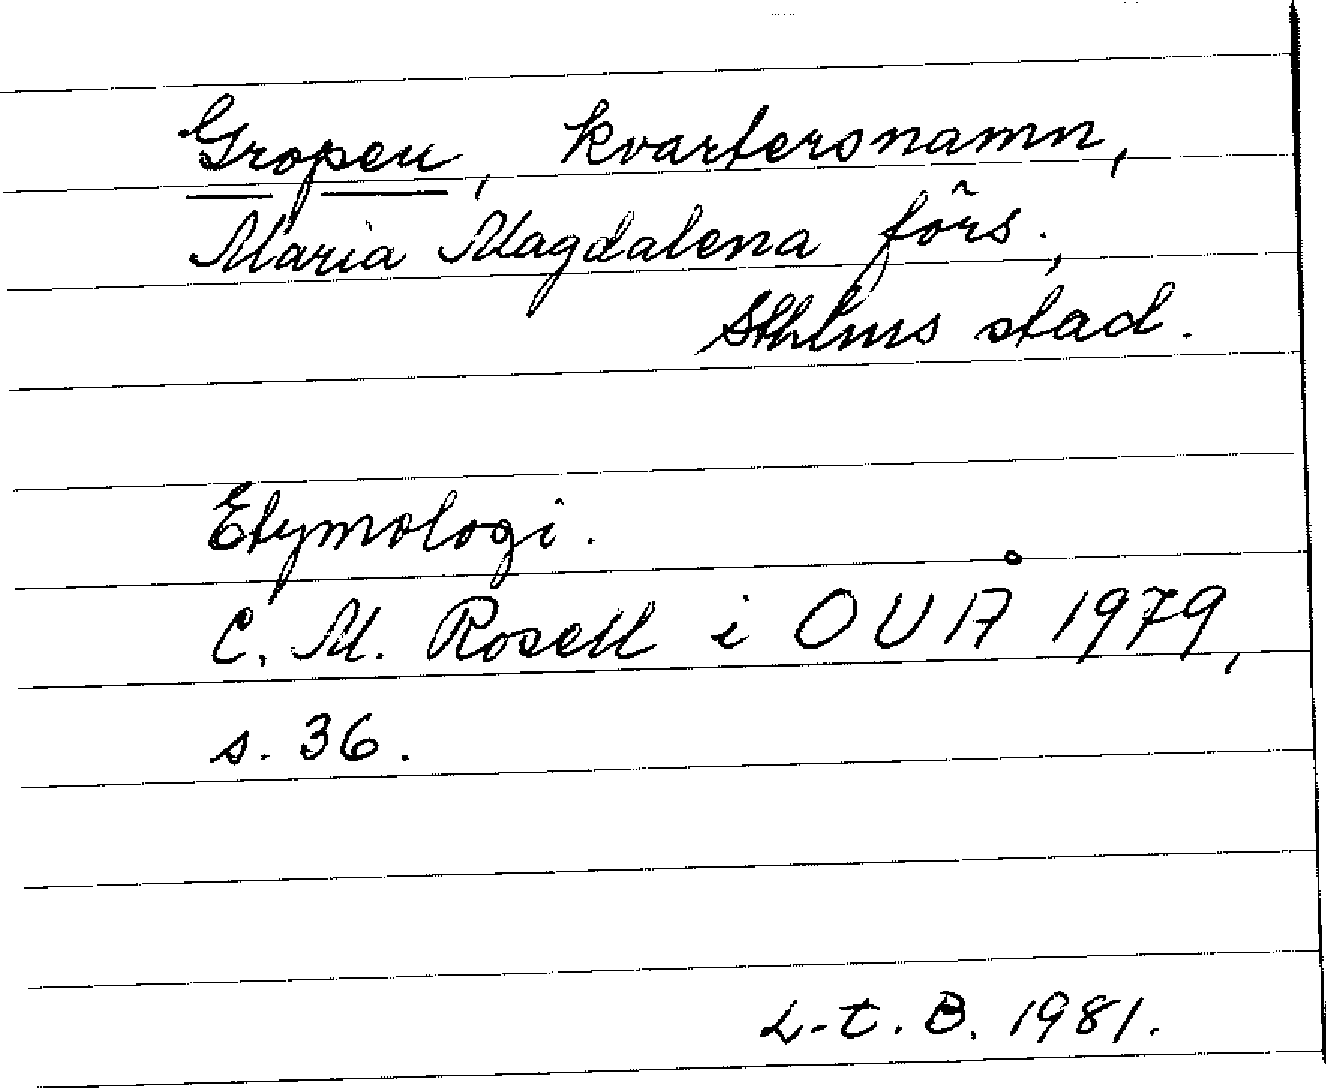 Gropen, kvartersnamn,
Maria Magdalena förs.,
Sthlms stad.
Etymologi.
C. M. Rosell i OUÅ 1979,
s. 36.
L-t. B. 1981.